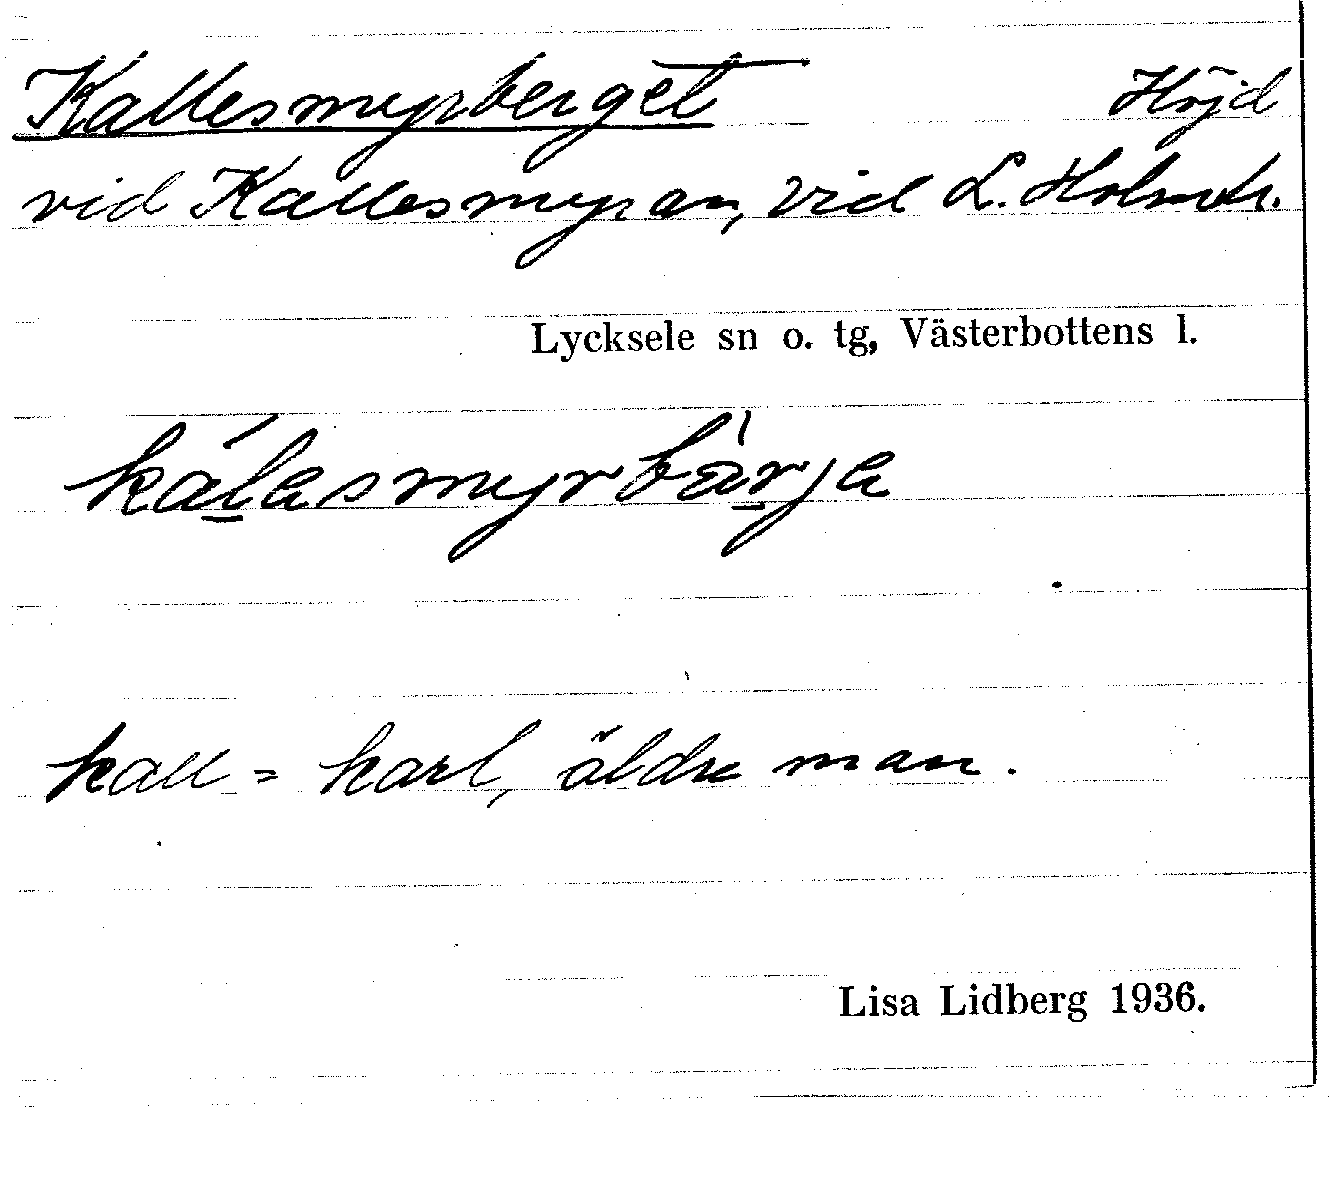 Kallesmyrberget Höjd
vid Kallesmyran, vid L. Holmtr.
Lycksele sn o. tg, Västerbottens l.
kálasmyrbàrja
kall = karl, äldre man.
Lisa Lidberg 1936.